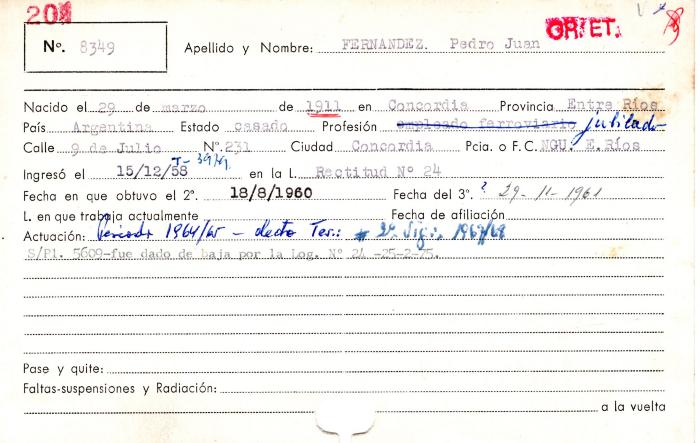 201
OR. ET.
Nº. 8349 Apellido y Nombre: FERNANDEZ. Pedro Juan
Nacido el 29 de marzo de 1911 en Concordia Provincia Entre Ríos
País Argentina Estado casado Profesión empleado ferroviario jubilado
Calle 9 de Julio Nº. 231 Ciudad Concordia Pcia. o F.C. NGU. E.Ríos
Ingresó el 15/12/58 en la L. Rectitud Nº 24
Fecha en que obtuvo el 2º. 18/8/1960 Fecha del 3º. ? 29-11-1961
L. en que trabaja actualmente Fecha de afiliación
Actuación: Periodo 1964/65 - electo Tes.: 2º Vig.: 1967/68
S/Pl. 5609-fue dado de baja por la Log. Nº 24 -25-2-75.
Pase y quite:
Faltas-suspensiones y Radiación:
a la vuelta